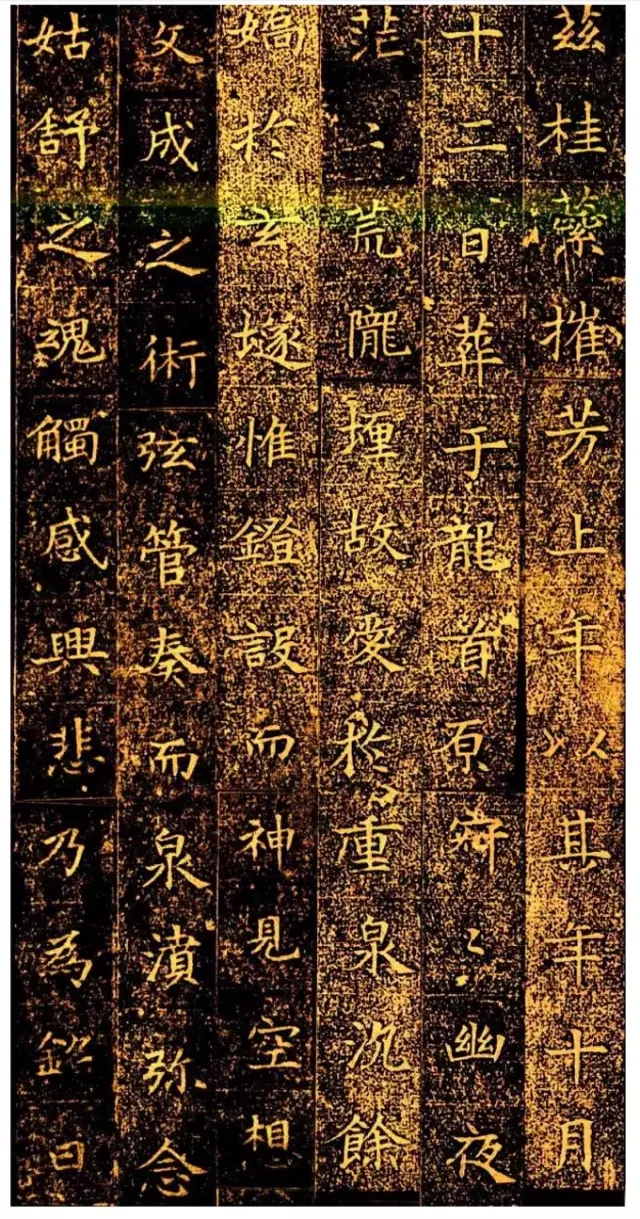 茲桂蘂摧芳上年以其年十月
十二日葬于龍首原寂〻幽夜
茫〻荒隴埋故愛於重泉沉餘
嬌於玄隧惟鐙設而神見空相
文成之術弦管奏而泉濆弥念
姑舒之魂觸感興悲乃為銘曰